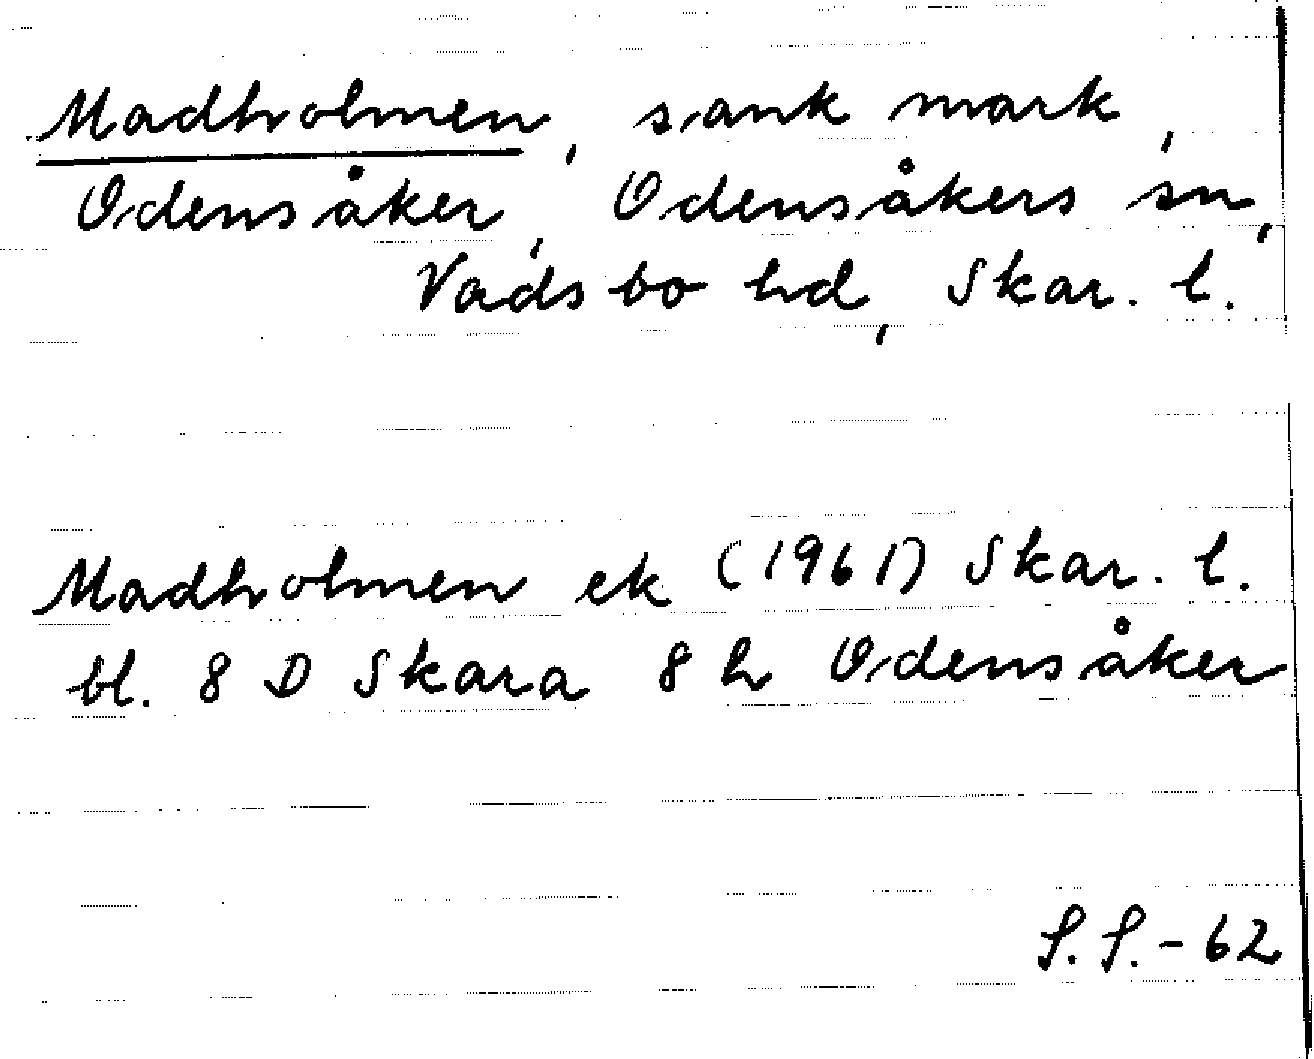 Madholmen, sank mark,
Odensåker, Odensåkers sn,
Vadsbo hd, Skar. l.
Madholmen ek (1961) Skar. l.
bl. 8 D Skara 8 h Odensåker
S.S.-62